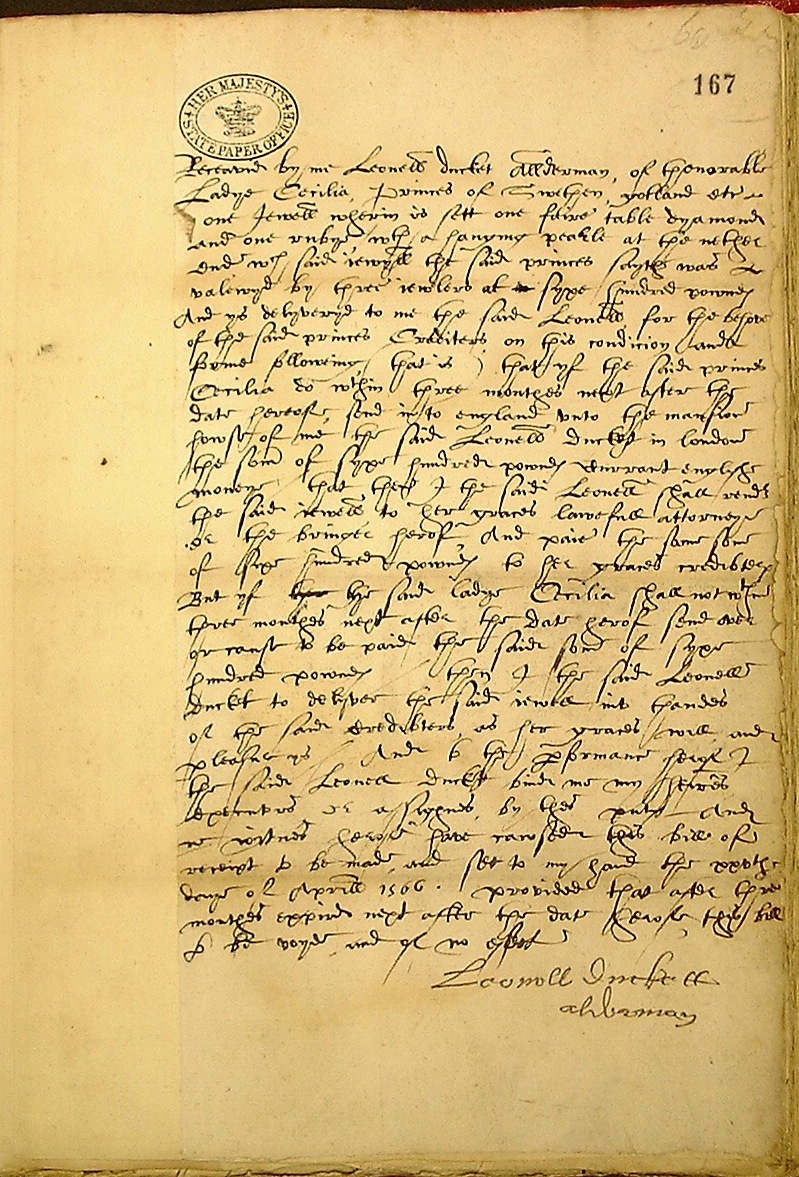 167
HER MAJESTY'S
STATE PAPER OFFICE
Receaved by me Leonell ducket Allderman, of thonorable
Ladye Cecilia, Princes of Swethen, gotland etc
one Jewell wherin is sett one faire table dyamond
and one rubye wth a hanging pearle at the nether
end wch said iewell the said princes sayth was
valewyd by three iewlers at syxe hundred pownd
And ys delyveryd to me the said Leonell for the behove
of the said princes Crediters on this condicion and
forme followeing, that is / that yf the said princes
Cecilia do wthin three monthes next after the
date hereof, send into england unto the mansion
howse of me the said Leonell ducket in london
the som of syxe hundred pownd currant englishe
moneye that then I the said Leonell shall rend
the said iewell to her graces lawefull attorneye
or the bringer herof And paie the same some
of syxe hundred pownd to her graces crediters
But yf the said ladye Cecilia shall not wthin
three monthes next after the date herof send over
or cause to be paid the said som of syxe
hundred pownd / then I the said Leonell
ducket to deliver the said iewell into handes
of the said crediters, as her graces will and
pleasur ys And to the pformance herof I
the said Leonell ducket bind me my heires
executors or assignes, by thes And
in witnes herof have cawsed this bill of
receipt to be made, and sett to my hand the xxvthe
daye of Aprill 1566. provided that after three
monthes expired next after the date herof, this bill
to be voyd and of no effect
Leonell Duckett
alderman